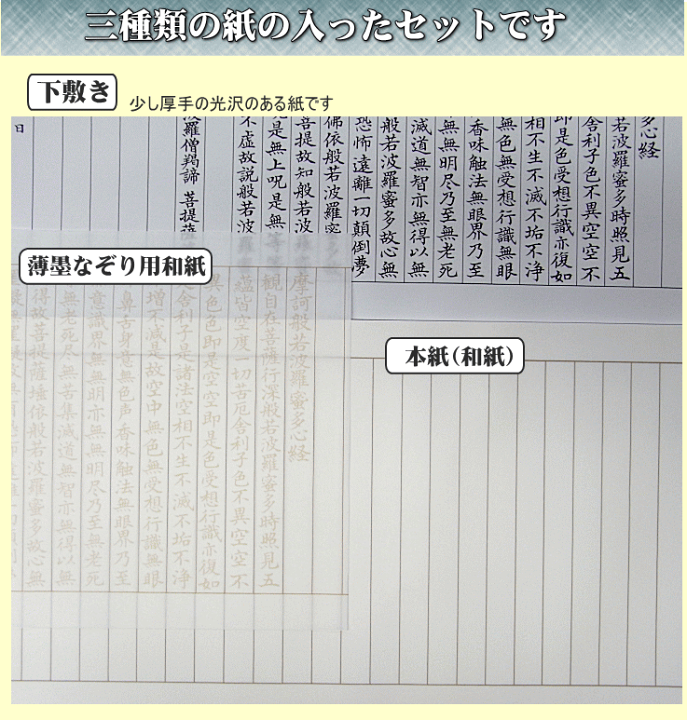 三種類の紙の入ったセットです
下敷き
少し厚手の光沢のある紙です
多心経
若波羅蜜多時照見五
舎利子色不異空空不
即是色受想行識亦復如
相不生不滅不垢不浄
無色無受想行識無眼
香味触法無眼界乃至
無無明尽乃至無老死
滅道無智亦無得以無
般若波羅蜜多故心無
恐怖遠離一切顛倒夢
佛依般若波羅蜜
菩提故知般若波羅
是無上呪是無
不虚故説般若波
波羅僧羯諦 菩提薩
日
薄墨なぞり用和紙
摩訶般若波羅蜜多心経
観自在菩薩行深般若波羅蜜多時照見五
蘊皆空度一切苦厄舎利子色不異空空不
異色色即是空空即是色受想行識亦復如
是舎利子是諸法空相不生不滅不垢不浄
不増不減是故空中無色無受想行識無眼
耳鼻舌身意無色声香味触法無眼界乃至
無意識界無無明亦無無明尽乃至無老死
亦無老死尽無苦集滅道無智亦無得以無
所得故菩提薩埵依般若波羅蜜多故心無
本紙(和紙)